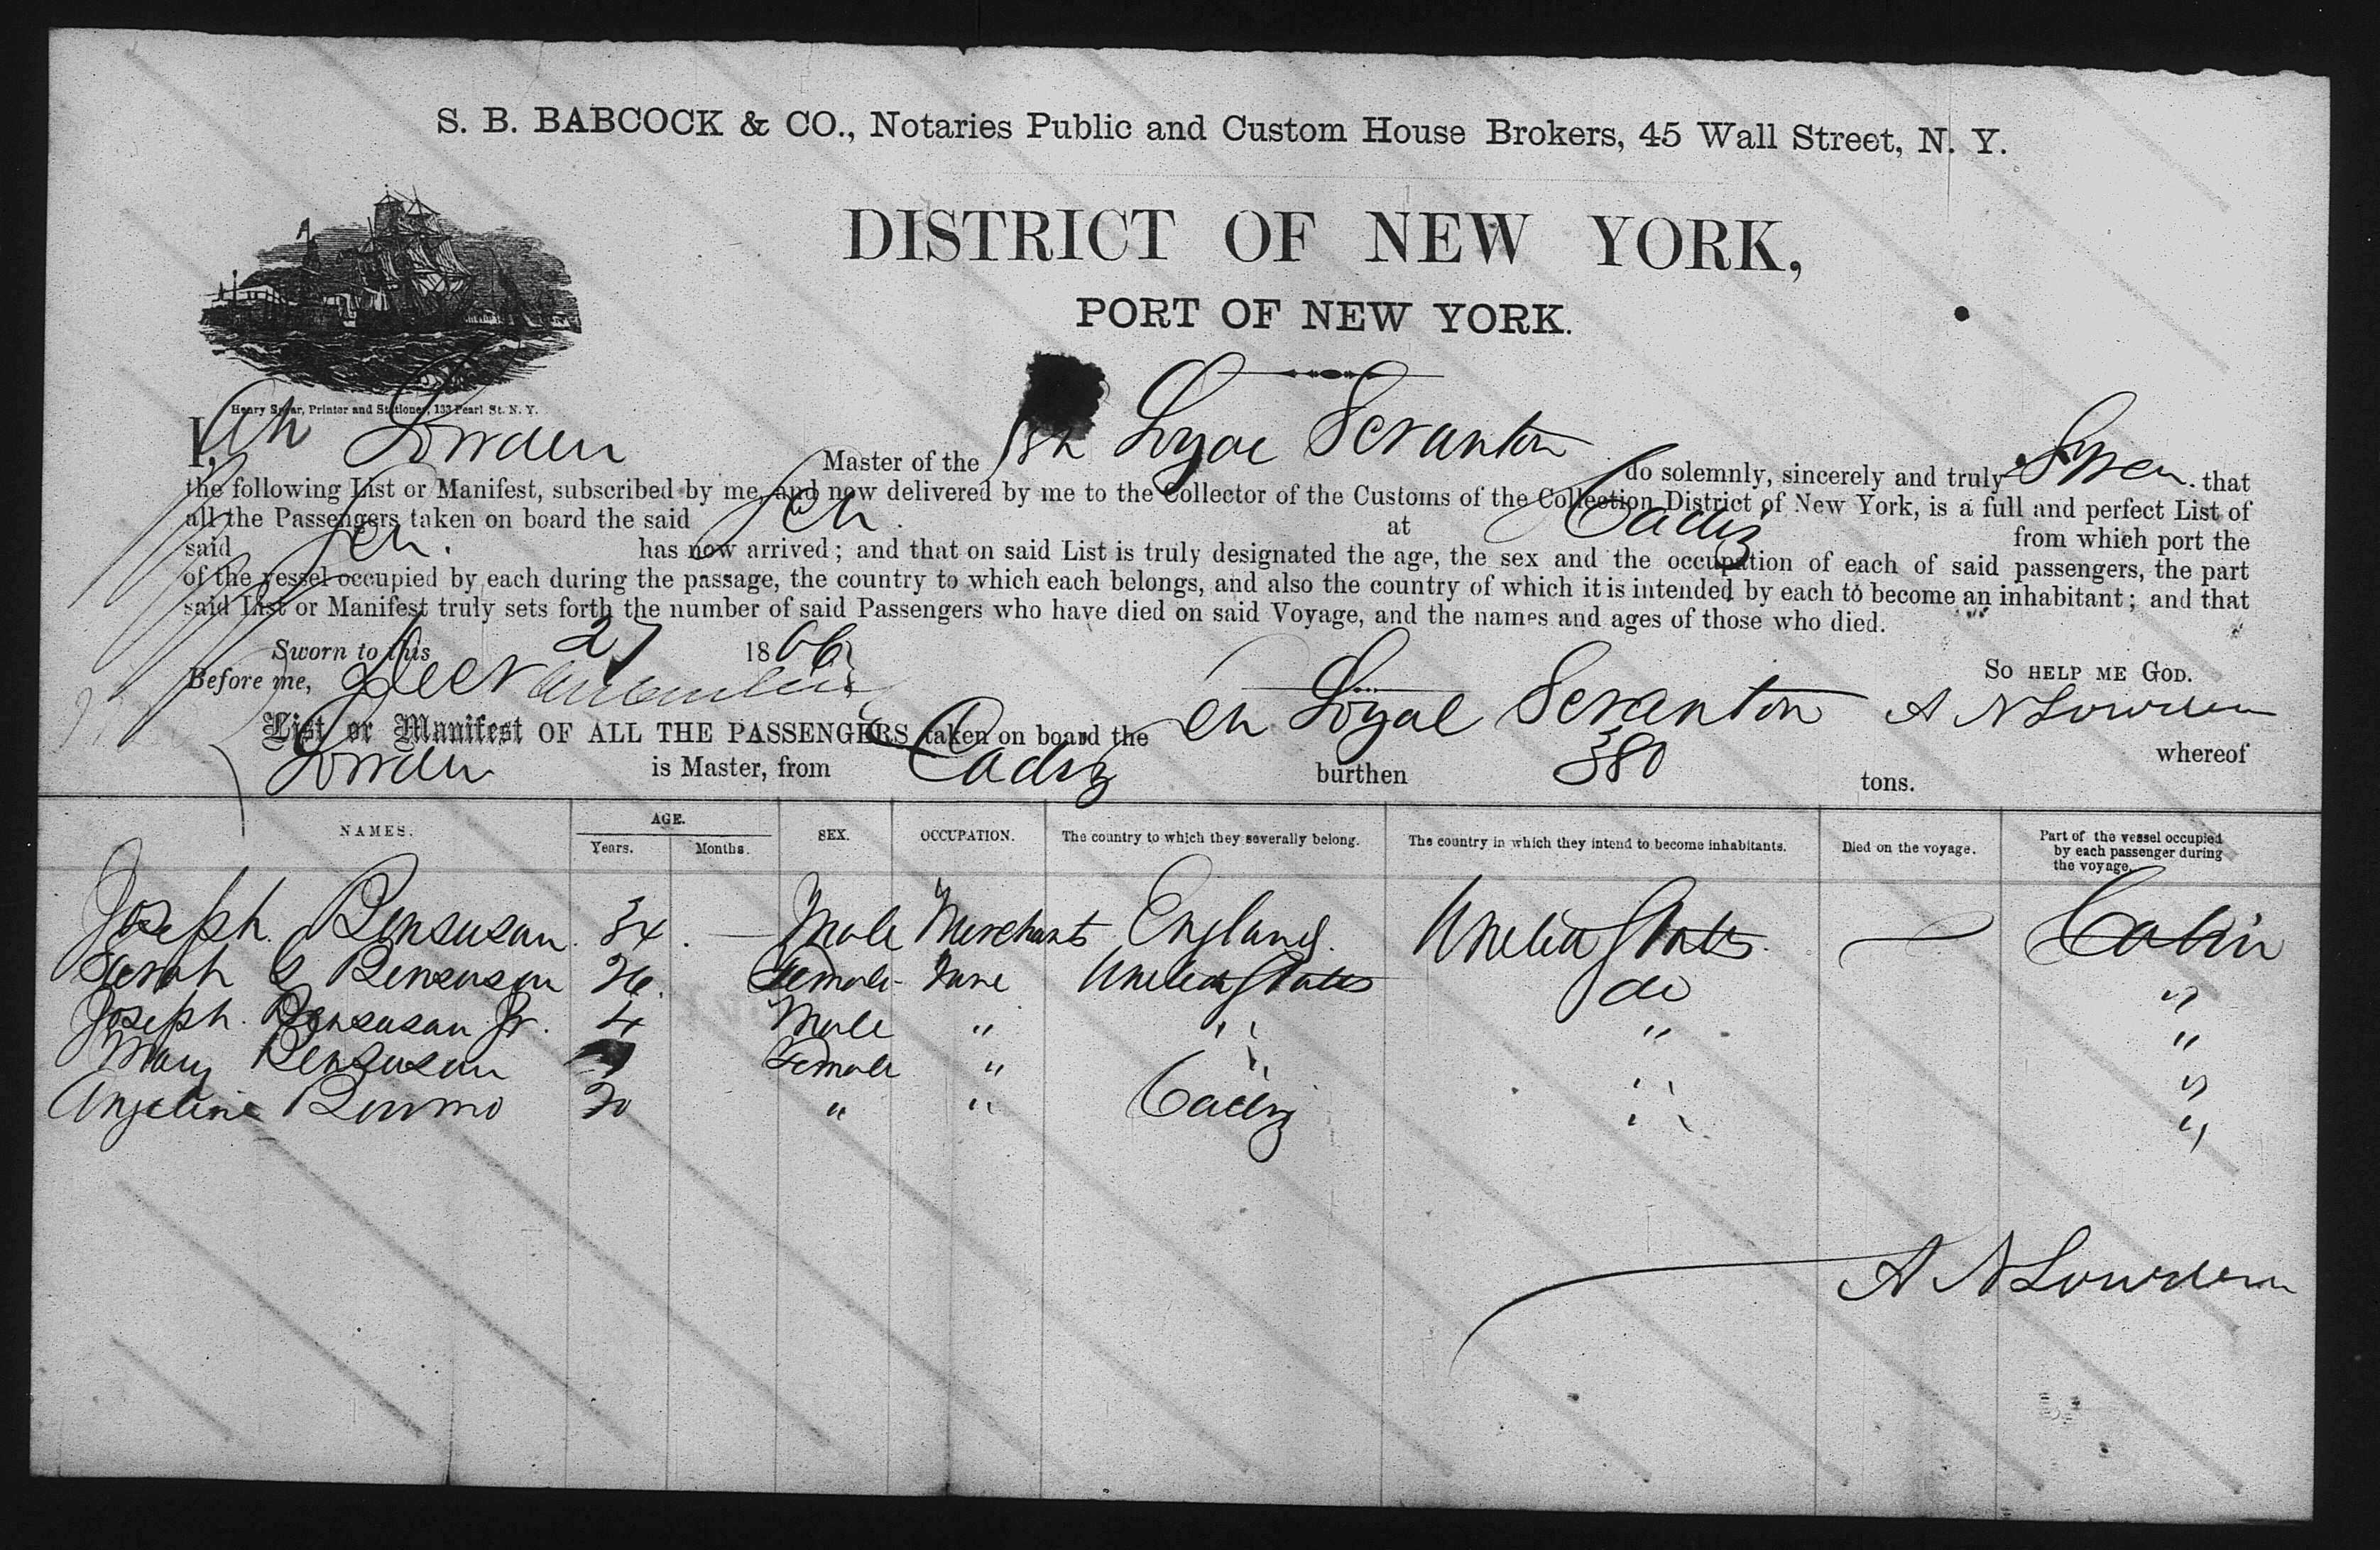 S. B. BABCOCK & CO., Notaries Public and Custom House Brokers, 45 Wall Street, N. Y.
DISTRICT OF NEW YORK,
PORT OF NEW YORK.
Henry Spear, Printer and Stationer, 133 Pearl St. N. Y.
I, Master of the Sch Loyal Scranton do solemnly, sincerely and truly Swear that
the following List or Manifest, subscribed by me, and now delivered by me to the Collector of the Customs of the Collection District of New York, is a full and perfect List of
all the Passengers taken on board the said Sch. at Cadiz from which port the
said Sch. has now arrived; and that on said List is truly designated the age, the sex and the occupation of each of said passengers, the part
of the vessel occupied by each during the passage, the country to which each belongs, and also the country of which it is intended by each to become an inhabitant; and that
said List or Manifest truly sets forth the number of said Passengers who have died on said Voyage, and the names and ages of those who died.
Sworn to this 27 1866
SO HELP ME GOD.
Before me, Decr
A N Lowden
List or Manifest OF ALL THE PASSENGERS taken on board the Sch Loyal Scranton whereof
Lowden is Master, from Cadiz burthen 380 tons.
NAMES. AGE. SEX. OCCUPATION. The country to which they severally belong. The country in which they intend to become inhabitants. Died on the voyage. Part of the vessel occupied by each passenger during the voyage.
Years. Months.
Joseph Bensusan 34 Male Merchant England United States Cabin
Sarah G Bensusan 26 Female None United States do "
Joseph Bensusan Jr. 4 Male " " " "
Mary Bensusan Female " " " "
Angeline 20 " " Cadiz " "
A N Lowden